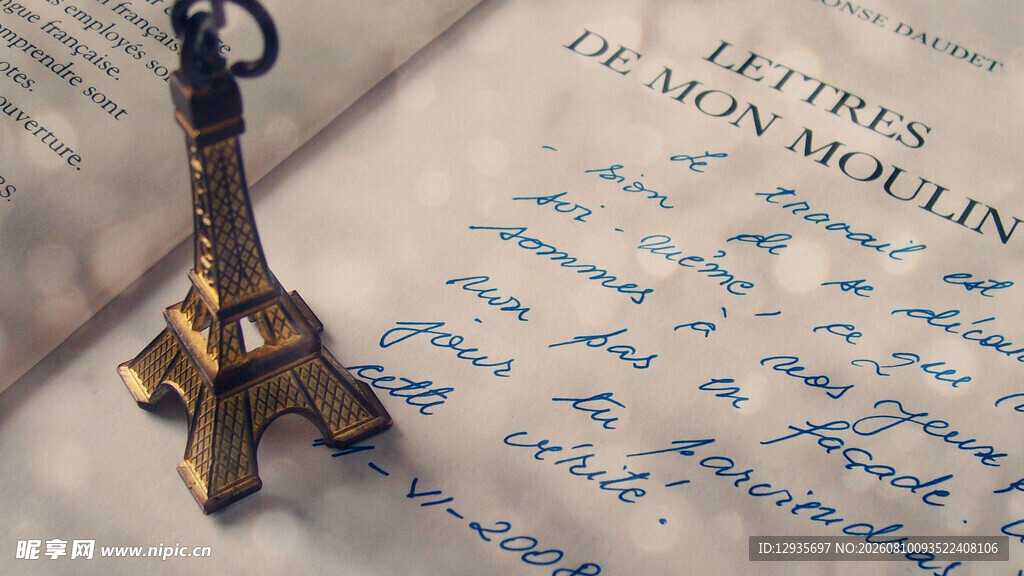 ngue française.
emprendre sont
otes.
ouverture.
RS.
ONSE DAUDET
LETTRES
DE MON MOULIN
Le travail est
sion de se décou
soi-même, ce que n
sommes à nos yeux
non pas en façade.
jour tu parviendras
cette vérité.
VI-2008
昵享网 www.nipic.cn
ID:12935697 NO:20260810093522408106